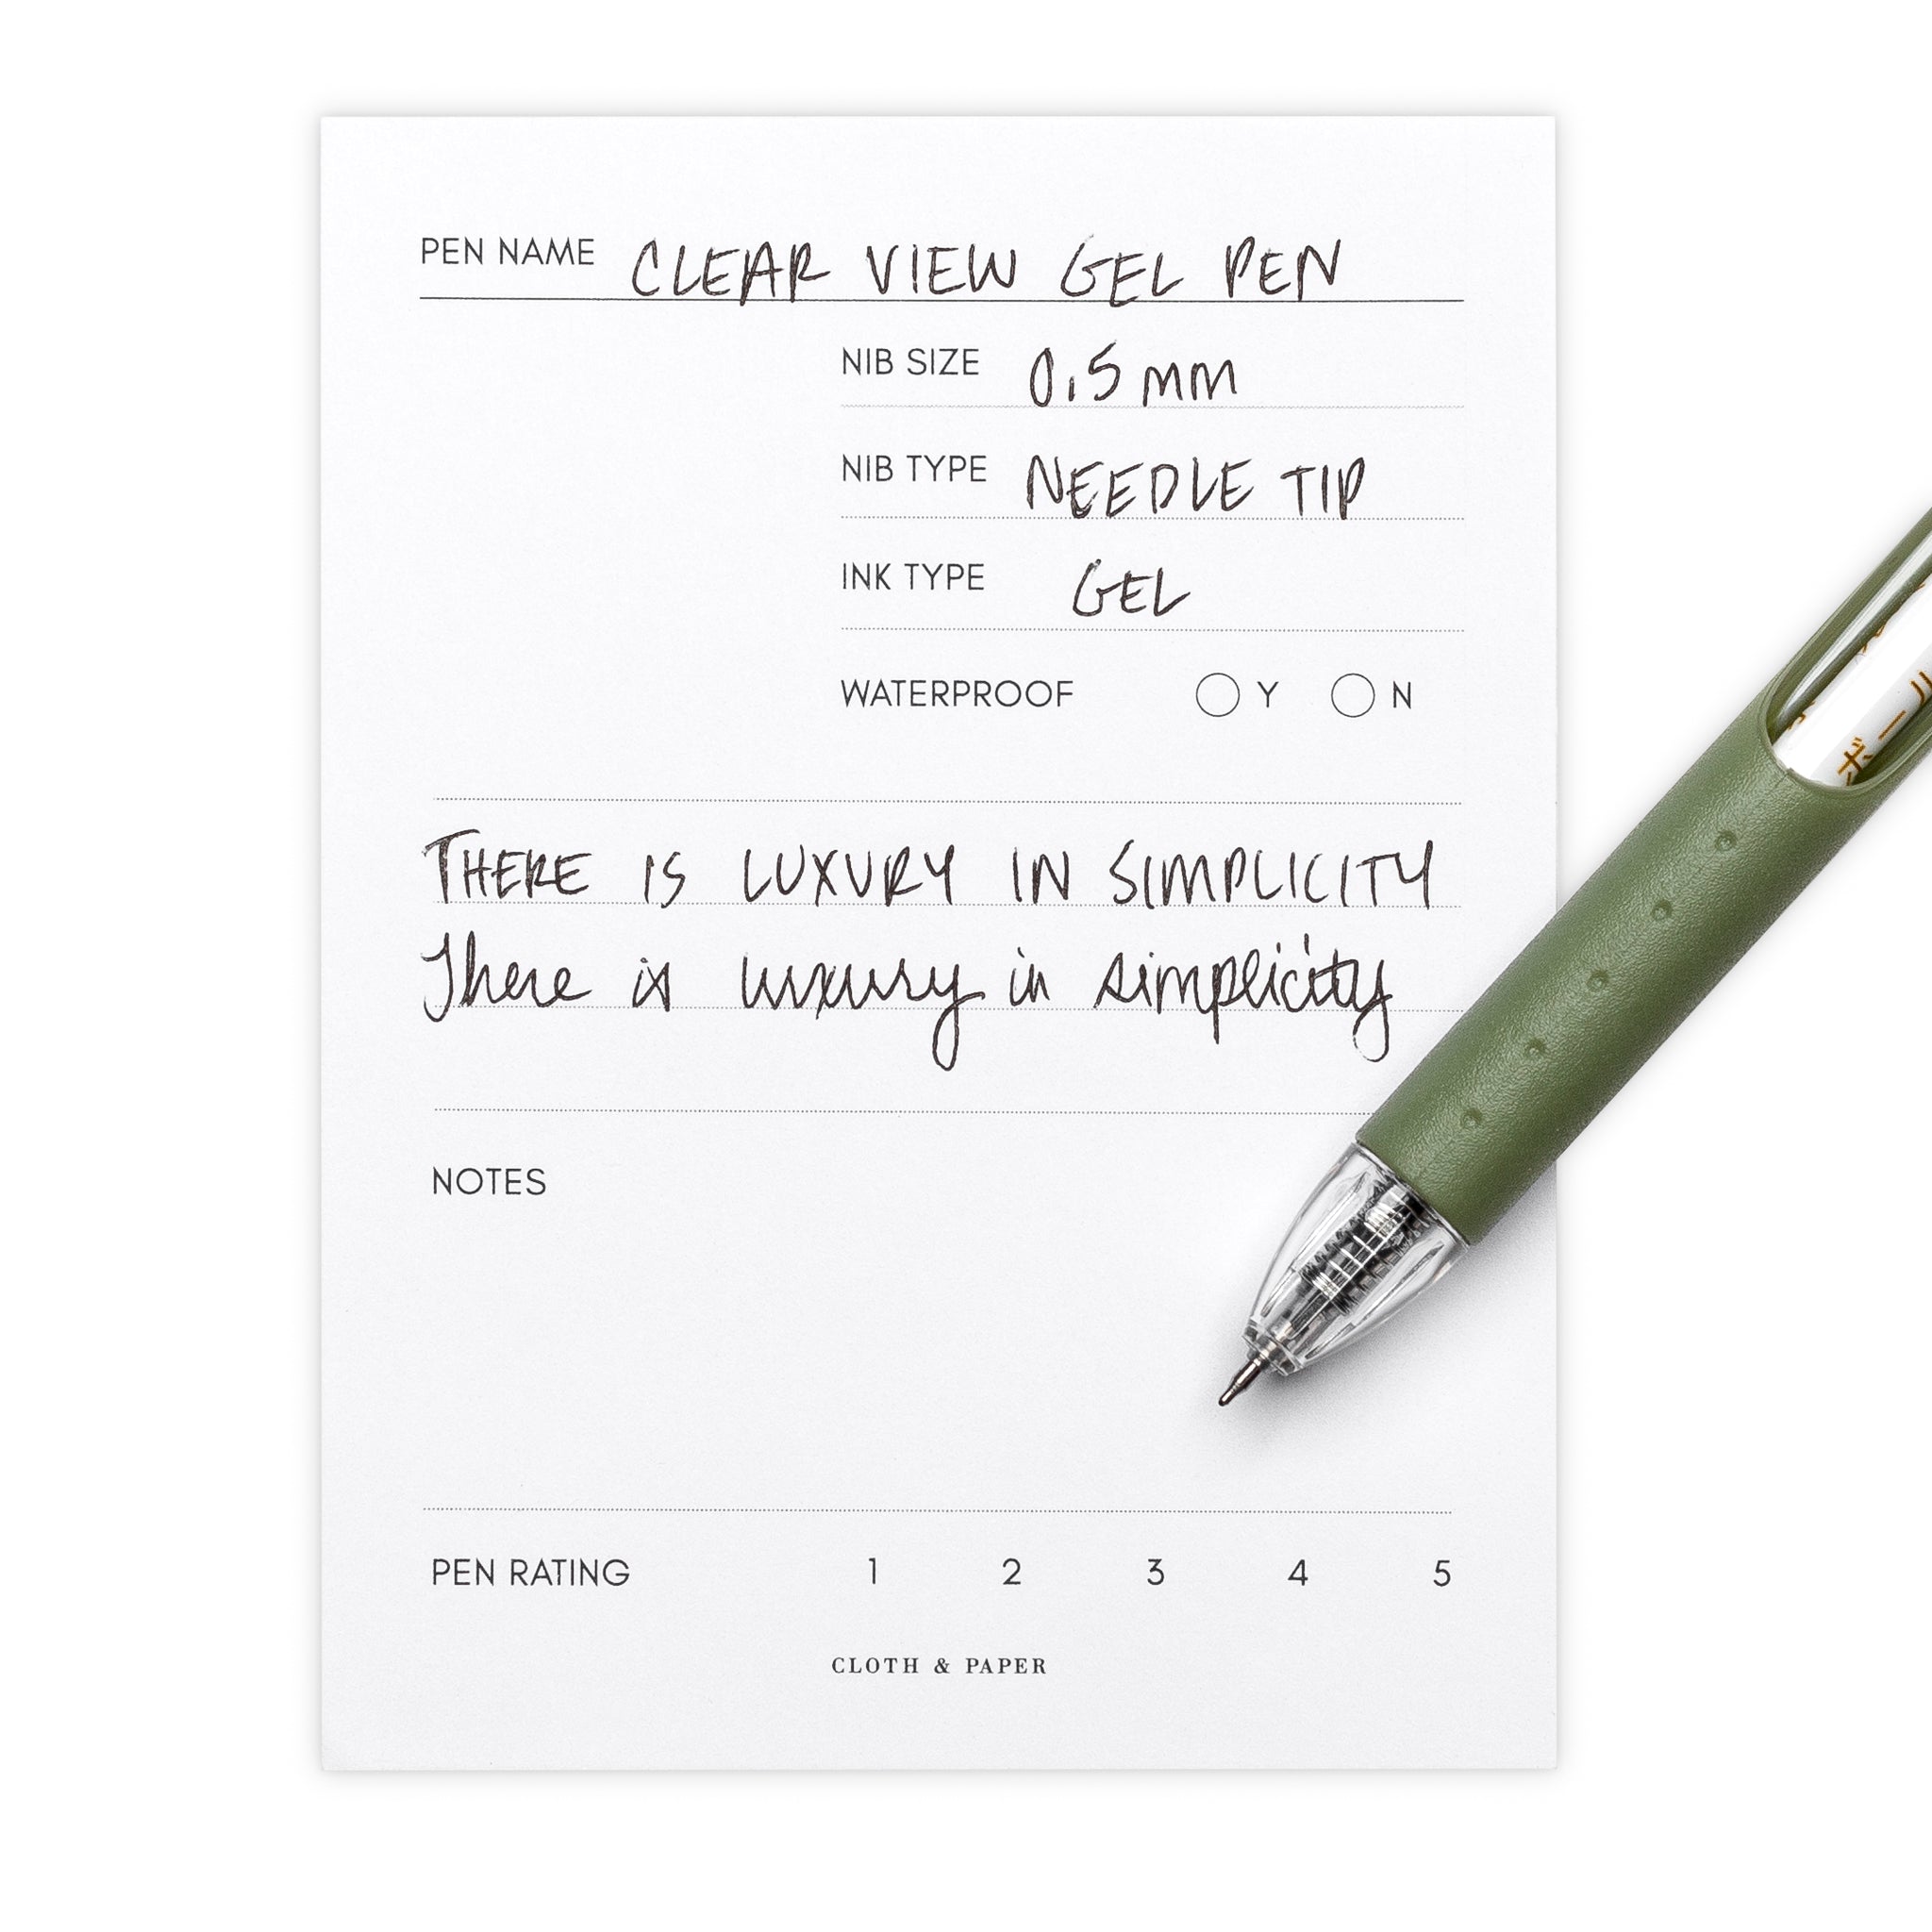 PEN NAME CLEAR VIEW GEL PEN
NIB SIZE 0.5mm
NIB TYPE NEEDLE TIP
INK TYPE GEL
WATERPROOF Y N
THERE IS LUXURY IN SIMPLICITY
There is luxury in simplicity
NOTES
PEN RATING 1 2 3 4 5
CLOTH & PAPER
ボール